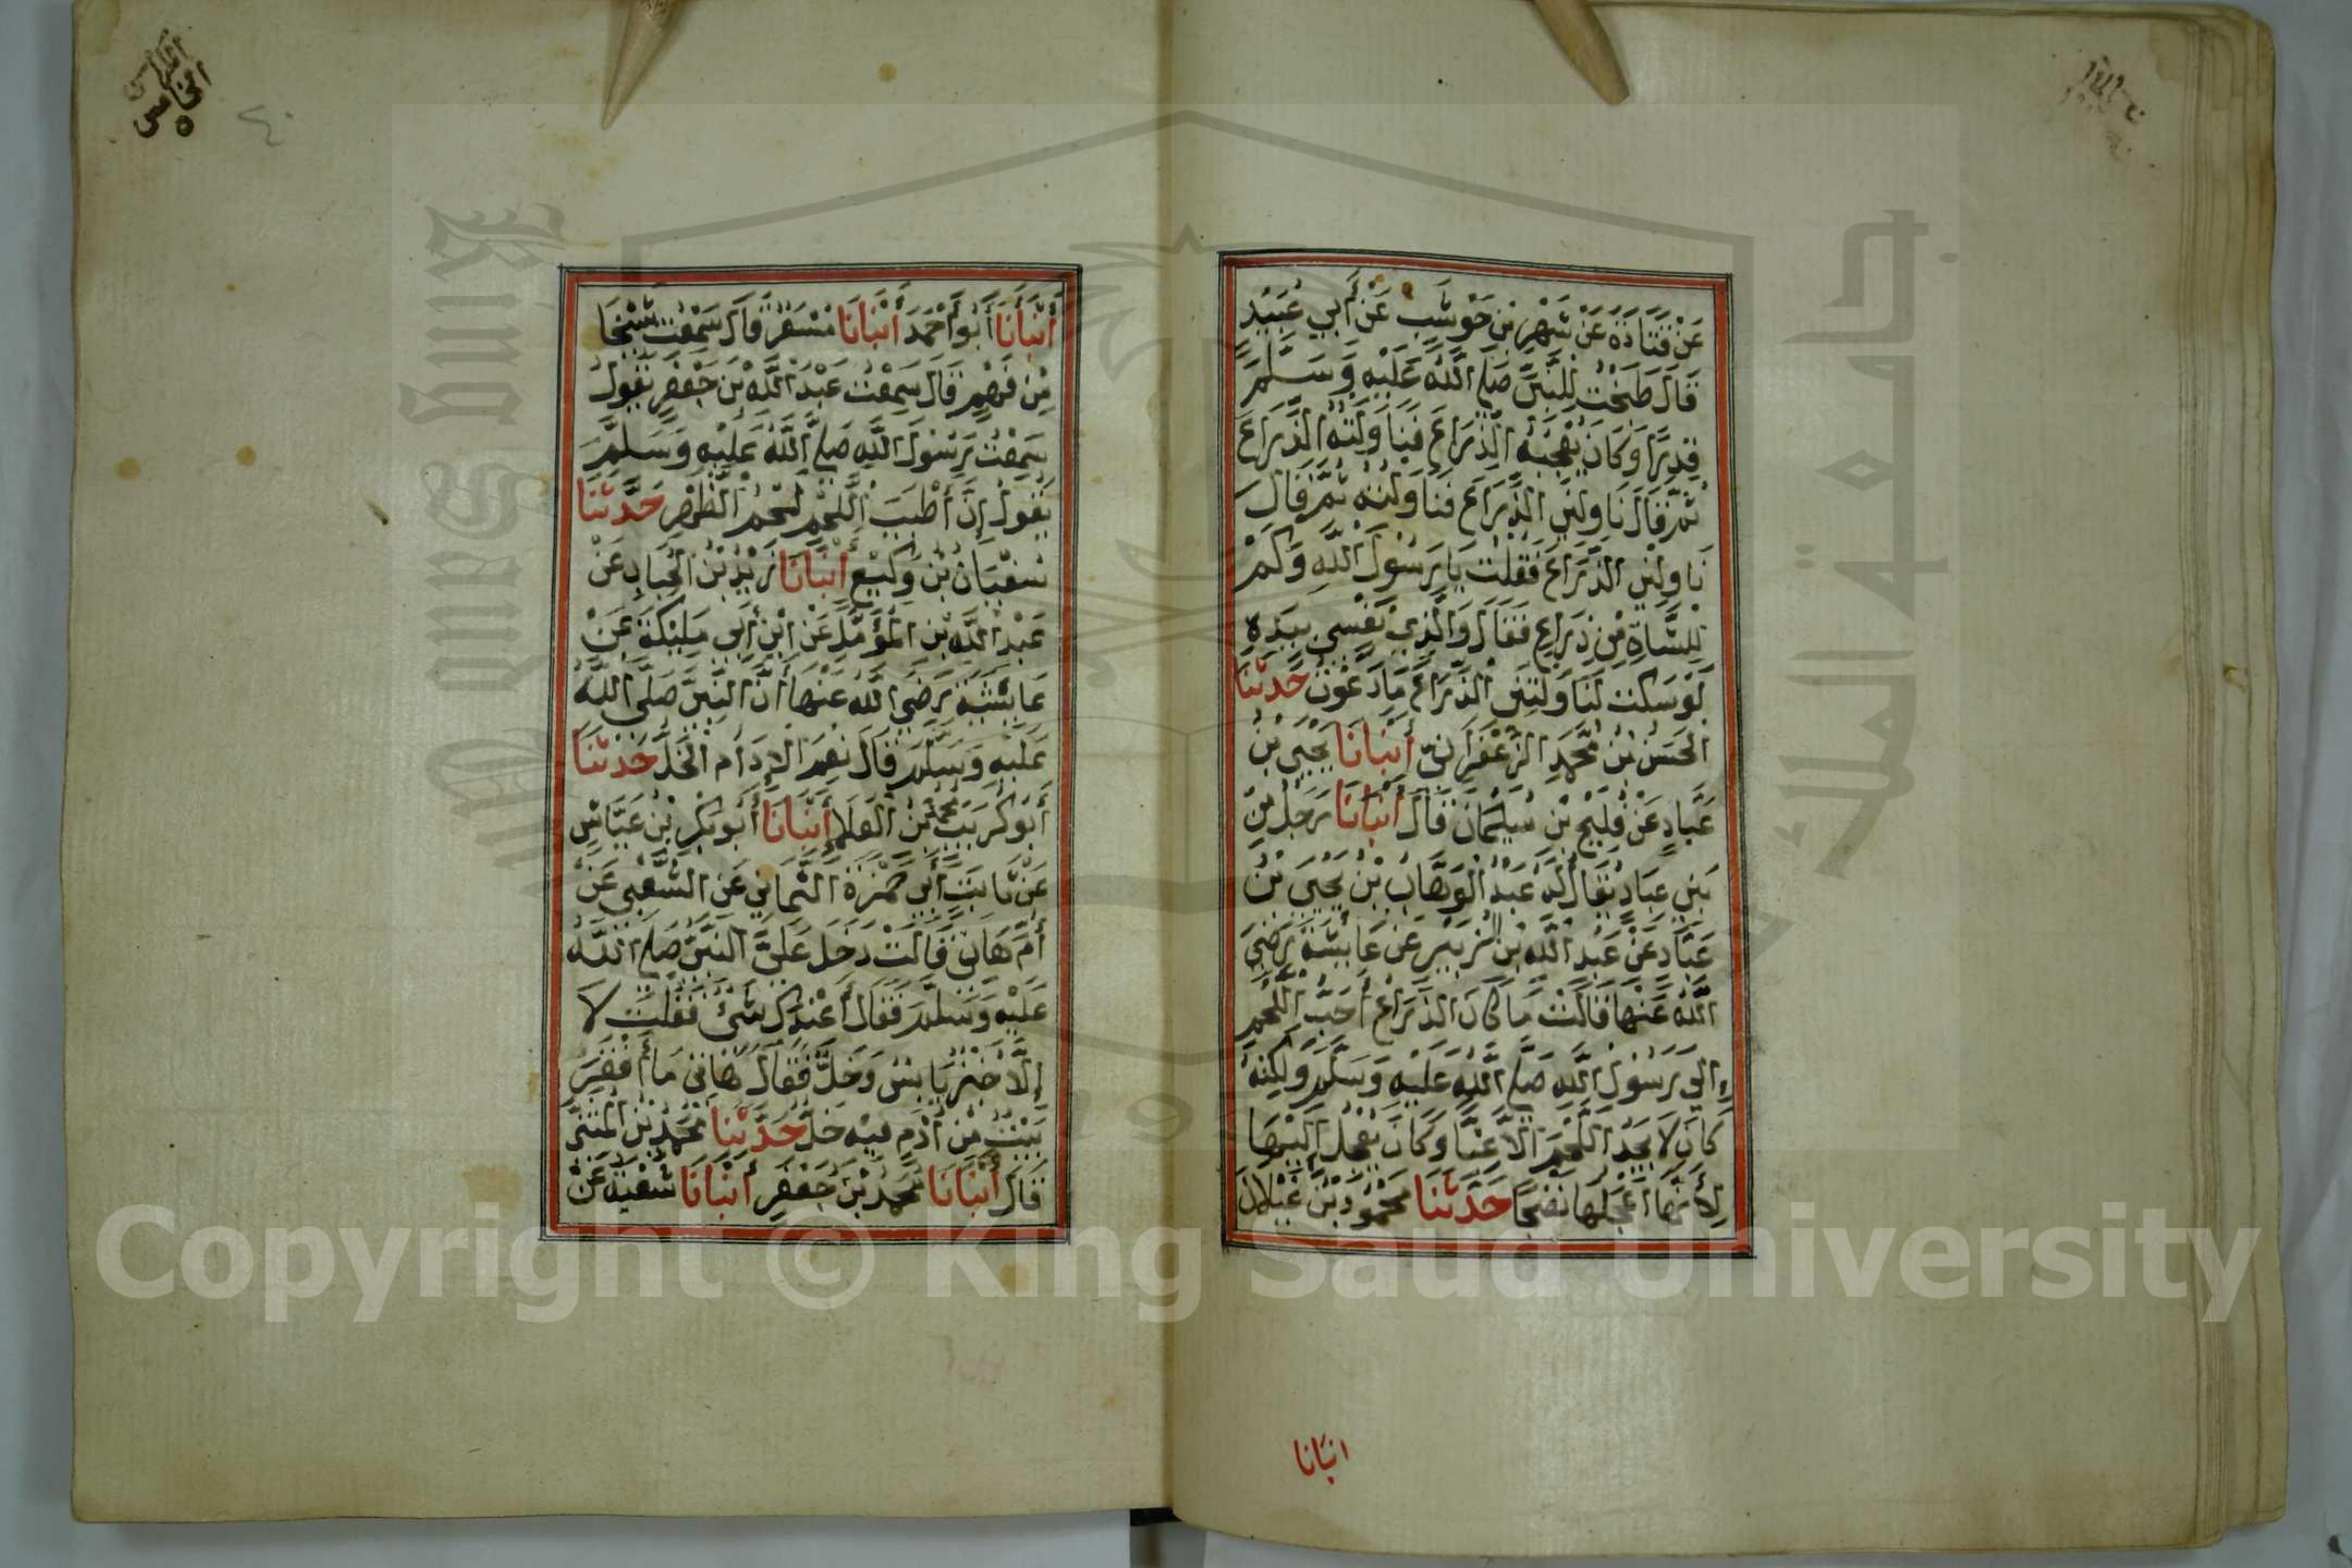 عَنْ قَتَادَةَ عَنْ شَهْرِ بْنِ حَوْشَبْ عَنْ أَبِي عُبَيْدٍ
قَالَ طَبَخْتُ لِلنَّبِيِّ صَلَّى اللَّهُ عَلَيْهِ وَسَلَّمَ
قِدْرًا وَكَانَ يُعْجِبُهُ الذِّرَاعُ فَنَاوَلْتُهُ الذِّرَاعَ
ثُمَّ قَالَ نَاوِلْنِي الذِّرَاعَ فَنَاوَلْتُهُ ثُمَّ قَالَ
نَاوِلْنِي الذِّرَاعَ فَقُلْتُ يَا رَسُولَ اللَّهِ وَكَمْ
لِلشَّاةِ مِنْ ذِرَاعٍ فَقَالَ وَالَّذِي نَفْسِي بِيَدِهِ
لَوْ سَكَتَّ لَنَاوَلْتَنِي الذِّرَاعَ مَا دَعَوْتُ حَدَّثَنَا
الْحَسَنُ بْنُ مُحَمَّدٍ الزَّعْفَرَانِيُّ أَنْبَأَنَا يَحْيَى بْنُ
عَبَّادٍ عَنْ فُلَيْحِ بْنِ سُلَيْمَانَ قَالَ أَنْبَأَنَا رَجُلٌ مِنْ
بَنِي عَبَّادٍ يُقَالُ لَهُ عَبْدُ الْوَهَّابِ بْنُ يَحْيَى بْنُ
عَبَّادٍ عَنْ عَبْدِ اللَّهِ بْنِ الزُّبَيْرِ عَنْ عَائِشَةَ رَضِيَ
اللَّهُ عَنْهَا قَالَتْ مَا كَانَ الذِّرَاعُ أَحَبَّ اللَّحْمِ
إِلَى رَسُولِ اللَّهِ صَلَّى اللَّهُ عَلَيْهِ وَسَلَّمَ وَلَكِنَّهُ
كَانَ لَا يَجِدُ اللَّحْمَ إِلَّا غِبًّا وَكَانَ يَعْجَلُ إِلَيْهَا
لِأَنَّهَا أَعْجَلُهَا نُضْجًا حَدَّثَنَا مَحْمُودُ بْنُ غَيْلَانَ
انبانا
أَنْبَأَنَا أَبُو أَحْمَدَ أَنْبَأَنَا مِسْعَرٌ قَالَ سَمِعْتُ شَيْخًا
مِنْ فَهْمٍ قَالَ سَمِعْتُ عَبْدَ اللَّهِ بْنَ جَعْفَرٍ يَقُولُ
سَمِعْتُ رَسُولَ اللَّهِ صَلَّى اللَّهُ عَلَيْهِ وَسَلَّمَ
يَقُولُ إِنَّ أَطْيَبَ اللَّحْمِ لَحْمُ الظَّهْرِ حَدَّثَنَا
سُفْيَانُ بْنُ وَكِيْعٍ أَنْبَأَنَا زَيْدُ بْنُ الْحُبَابِ عَنْ
عَبْدِ اللَّهِ بْنِ الْمُؤَمَّلِ عَنْ ابْنِ أَبِي مُلَيْكَةَ عَنْ
عَائِشَةَ رَضِيَ اللَّهُ عَنْهَا أَنَّ النَّبِيَّ صَلَّى اللَّهُ
عَلَيْهِ وَسَلَّمَ قَالَ نِعْمَ الْإِدَامُ الْخَلُّ حَدَّثَنَا
أَبُو كُرَيْبٍ مُحَمَّدُ بْنُ الْعَلَاءِ أَنْبَأَنَا أَبُو بَكْرِ بْنِ عَيَّاشٍ
عَنْ ثَابِتِ أَبِي حَمْزَةَ الثُّمَالِيِّ عَنِ الشَّعْبِيِّ عَنْ
أُمِّ هَانِئٍ قَالَتْ دَخَلَ عَلَيَّ النَّبِيُّ صَلَّى اللَّهُ
عَلَيْهِ وَسَلَّمَ فَقَالَ أَعِنْدَكِ شَيْءٌ فَقُلْتُ لَا
إِلَّا خُبْزٌ يَابِسٌ وَخَلٌّ فَقَالَ هَاتِي مَا أَقْفَرَ
بَيْتٌ مِنْ أُدْمٍ فِيهِ خَلٌّ حَدَّثَنَا مُحَمَّدُ بْنُ الْمُثَنَّى
قَالَ أَنْبَأَنَا مُحَمَّدُ بْنُ جَعْفَرٍ أَنْبَأَنَا شُعْبَةُ عَنْ
جامعة الملك سعود
King Saud University
Copyright © King Saud University